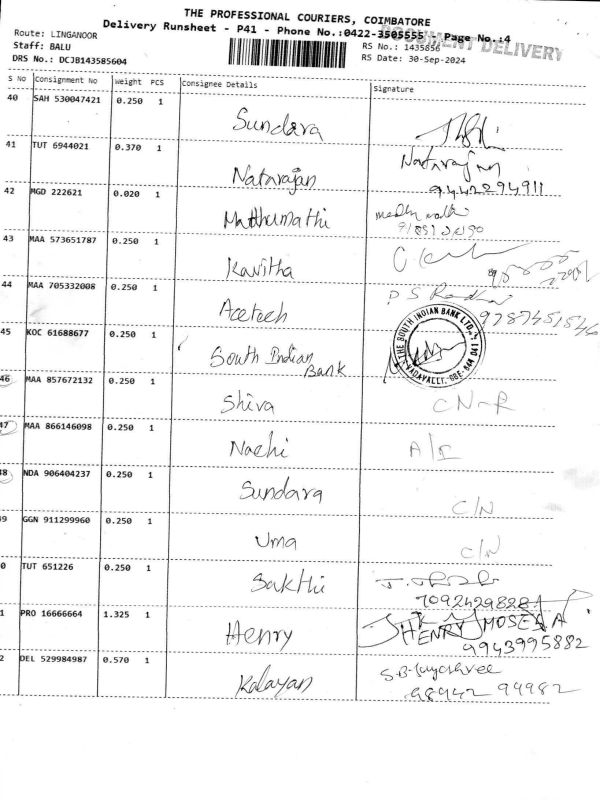 THE PROFESSIONAL COURIERS, COIMBATORE
Delivery Runsheet - P41 - Phone No.:0422-3505555 Page No.:4
DOCUMENT DELIVERY
Route: LINGANOOR
Staff: BALU
DRS No.: DCJB143585604
RS No.: 1435856
RS Date: 30-Sep-2024
S No Consignment No Weight PCS Consignee Details Signature
40 SAH 530047421 0.250 1 Sundara
41 TUT 6944021 0.370 1 Natarajan Natarajan
9442294911
42 MGD 222621 0.020 1 Matthumathi
43 MAA 573651787 0.250 1 Kavitha
44 MAA 705332008 0.250 1 Acetech
9787451546
45 KOC 61688677 0.250 1 South Indian Bank THE SOUTH INDIAN BANK LTD. VADAVALLI, CBE-641 041
46 MAA 857672132 0.250 1 Shiva CN-R
47 MAA 866146098 0.250 1 Nachi A/I
48 NDA 906404237 0.250 1 Sundara C/N
9 GGN 911299960 0.250 1 Uma C/N
0 TUT 651226 0.250 1 Sakthi
1 PRO 16666664 1.325 1 Henry HENRY MOSES A
9943995882
2 DEL 529984987 0.570 1 Kalayan S.B. Jayashree
98942 94982